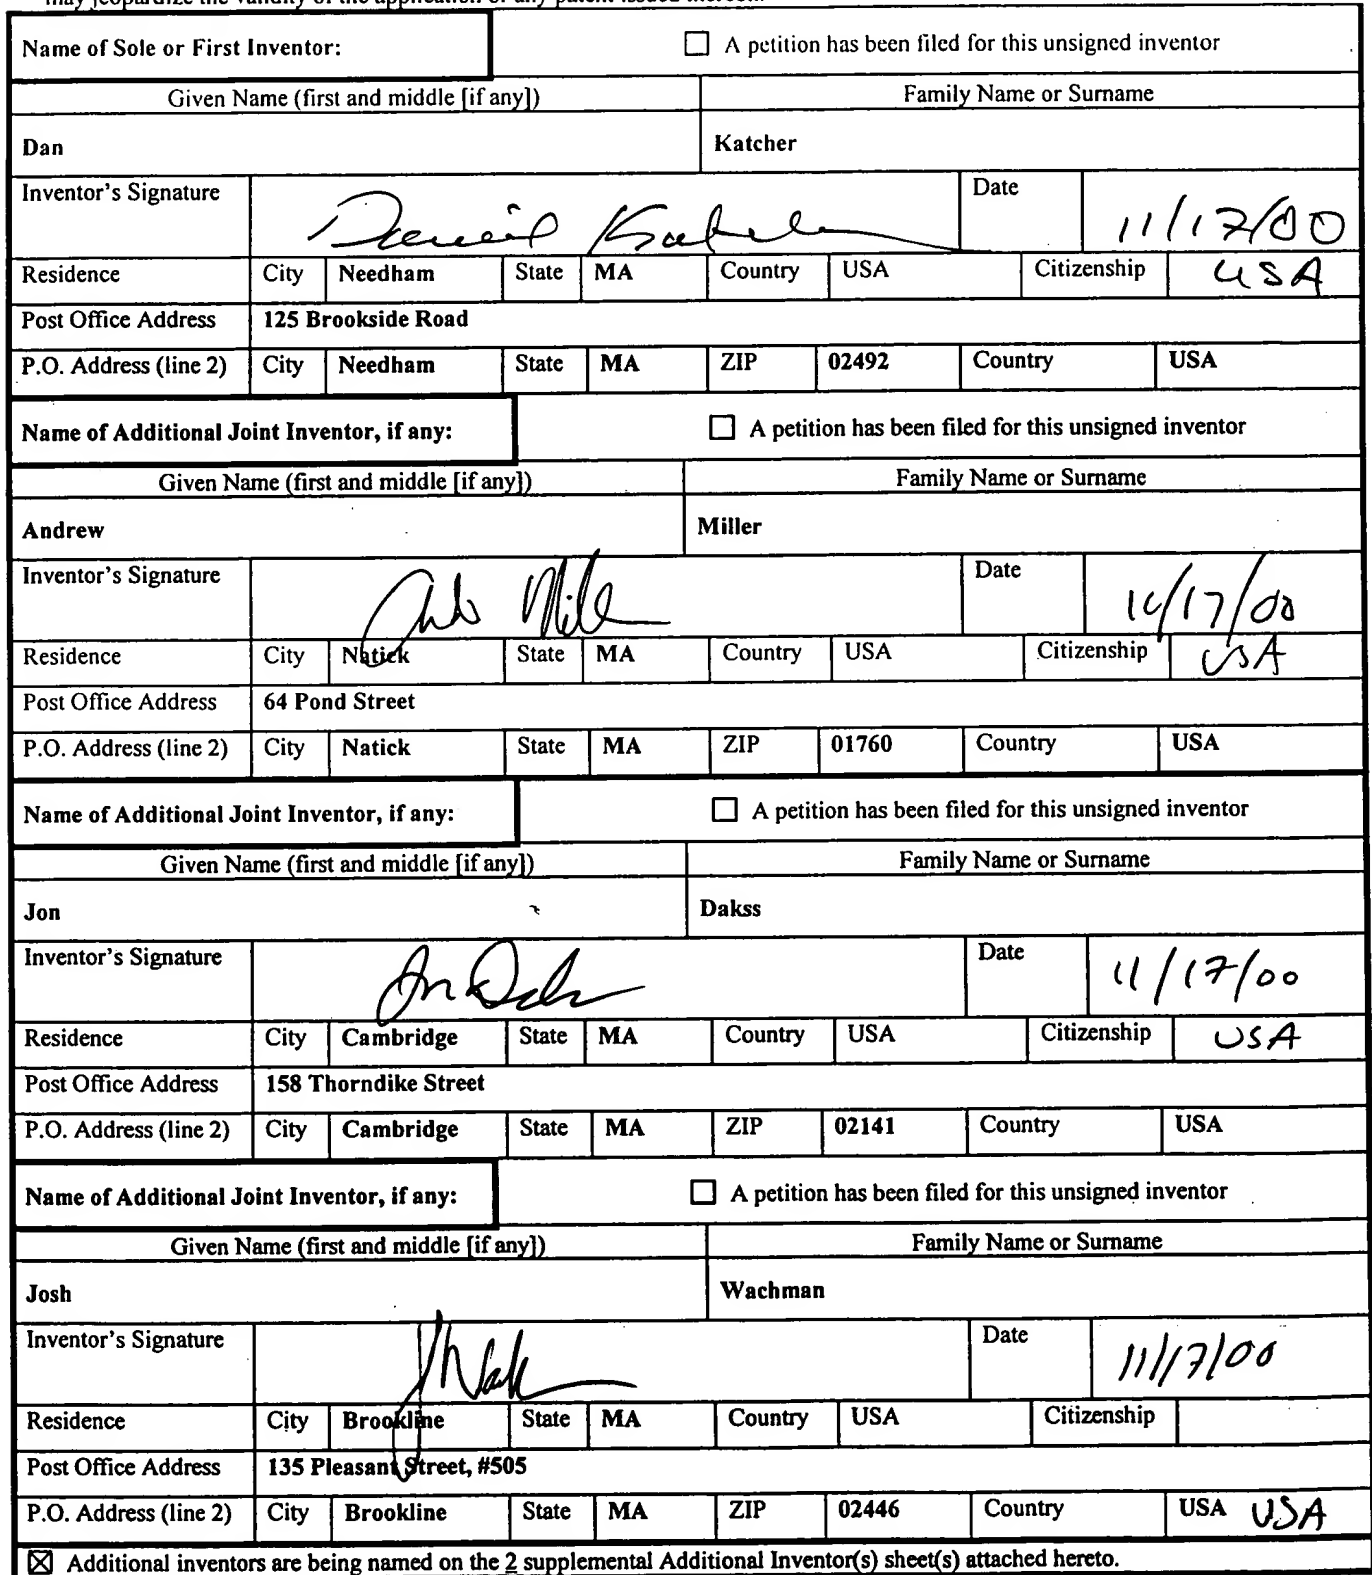 may jeopardize the validity of the application or any patent issued thereon.
Name of Sole or First Inventor: ☐ A petition has been filed for this unsigned inventor
Given Name (first and middle [if any]) Family Name or Surname
Dan Katcher
Inventor's Signature Daniel Katcher Date 11/17/00
Residence City Needham State MA Country USA Citizenship USA
Post Office Address 125 Brookside Road
P.O. Address (line 2) City Needham State MA ZIP 02492 Country USA
Name of Additional Joint Inventor, if any: ☐ A petition has been filed for this unsigned inventor
Given Name (first and middle [if any]) Family Name or Surname
Andrew Miller
Inventor's Signature Date /17/00
Residence City Natick State MA Country USA Citizenship USA
Post Office Address 64 Pond Street
P.O. Address (line 2) City Natick State MA ZIP 01760 Country USA
Name of Additional Joint Inventor, if any: ☐ A petition has been filed for this unsigned inventor
Given Name (first and middle [if any]) Family Name or Surname
Jon Dakss
Inventor's Signature Date 11/17/00
Residence City Cambridge State MA Country USA Citizenship USA
Post Office Address 158 Thorndike Street
P.O. Address (line 2) City Cambridge State MA ZIP 02141 Country USA
Name of Additional Joint Inventor, if any: ☐ A petition has been filed for this unsigned inventor
Given Name (first and middle [if any]) Family Name or Surname
Josh Wachman
Inventor's Signature Date 11/17/00
Residence City Brookline State MA Country USA Citizenship
Post Office Address 135 Pleasant Street, #505
P.O. Address (line 2) City Brookline State MA ZIP 02446 Country USA USA
☒ Additional inventors are being named on the 2 supplemental Additional Inventor(s) sheet(s) attached hereto.